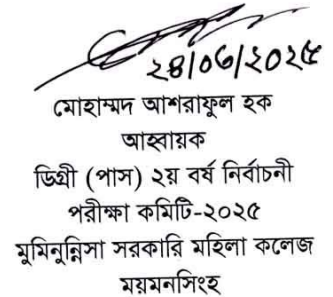 ২৪/০৬/২০২৫
মোহাম্মদ আশরাফুল হক
আহ্বায়ক
ডিগ্রী (পাস) ২য় বর্ষ নির্বাচনী
পরীক্ষা কমিটি-২০২৫
মুমিনুন্নিসা সরকারি মহিলা কলেজ
ময়মনসিংহ